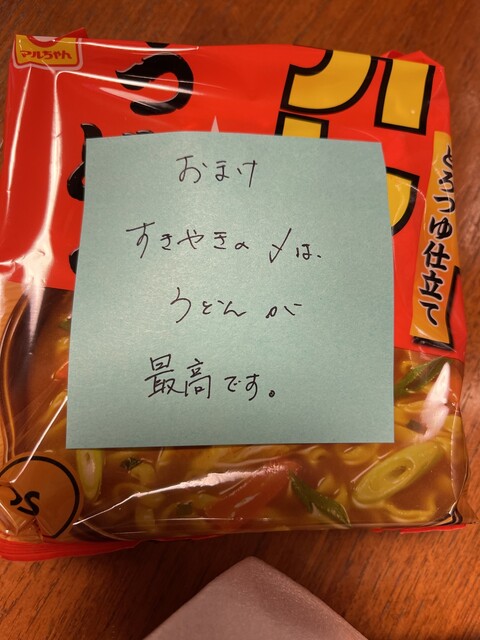 マルちゃん
おまけ
すきやきの〆は、
うどんが
最高です。
とろつゆ仕立て